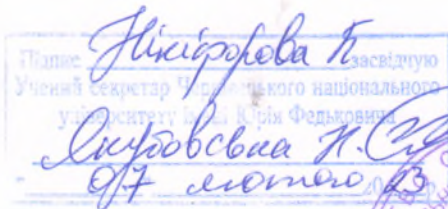 Підпис Нікіфорова Г. засвідчую
Учений секретар Чернівецького національного
університету імені Юрія Федьковича
Якубовська Н. О.
07 лютого 2023 р.